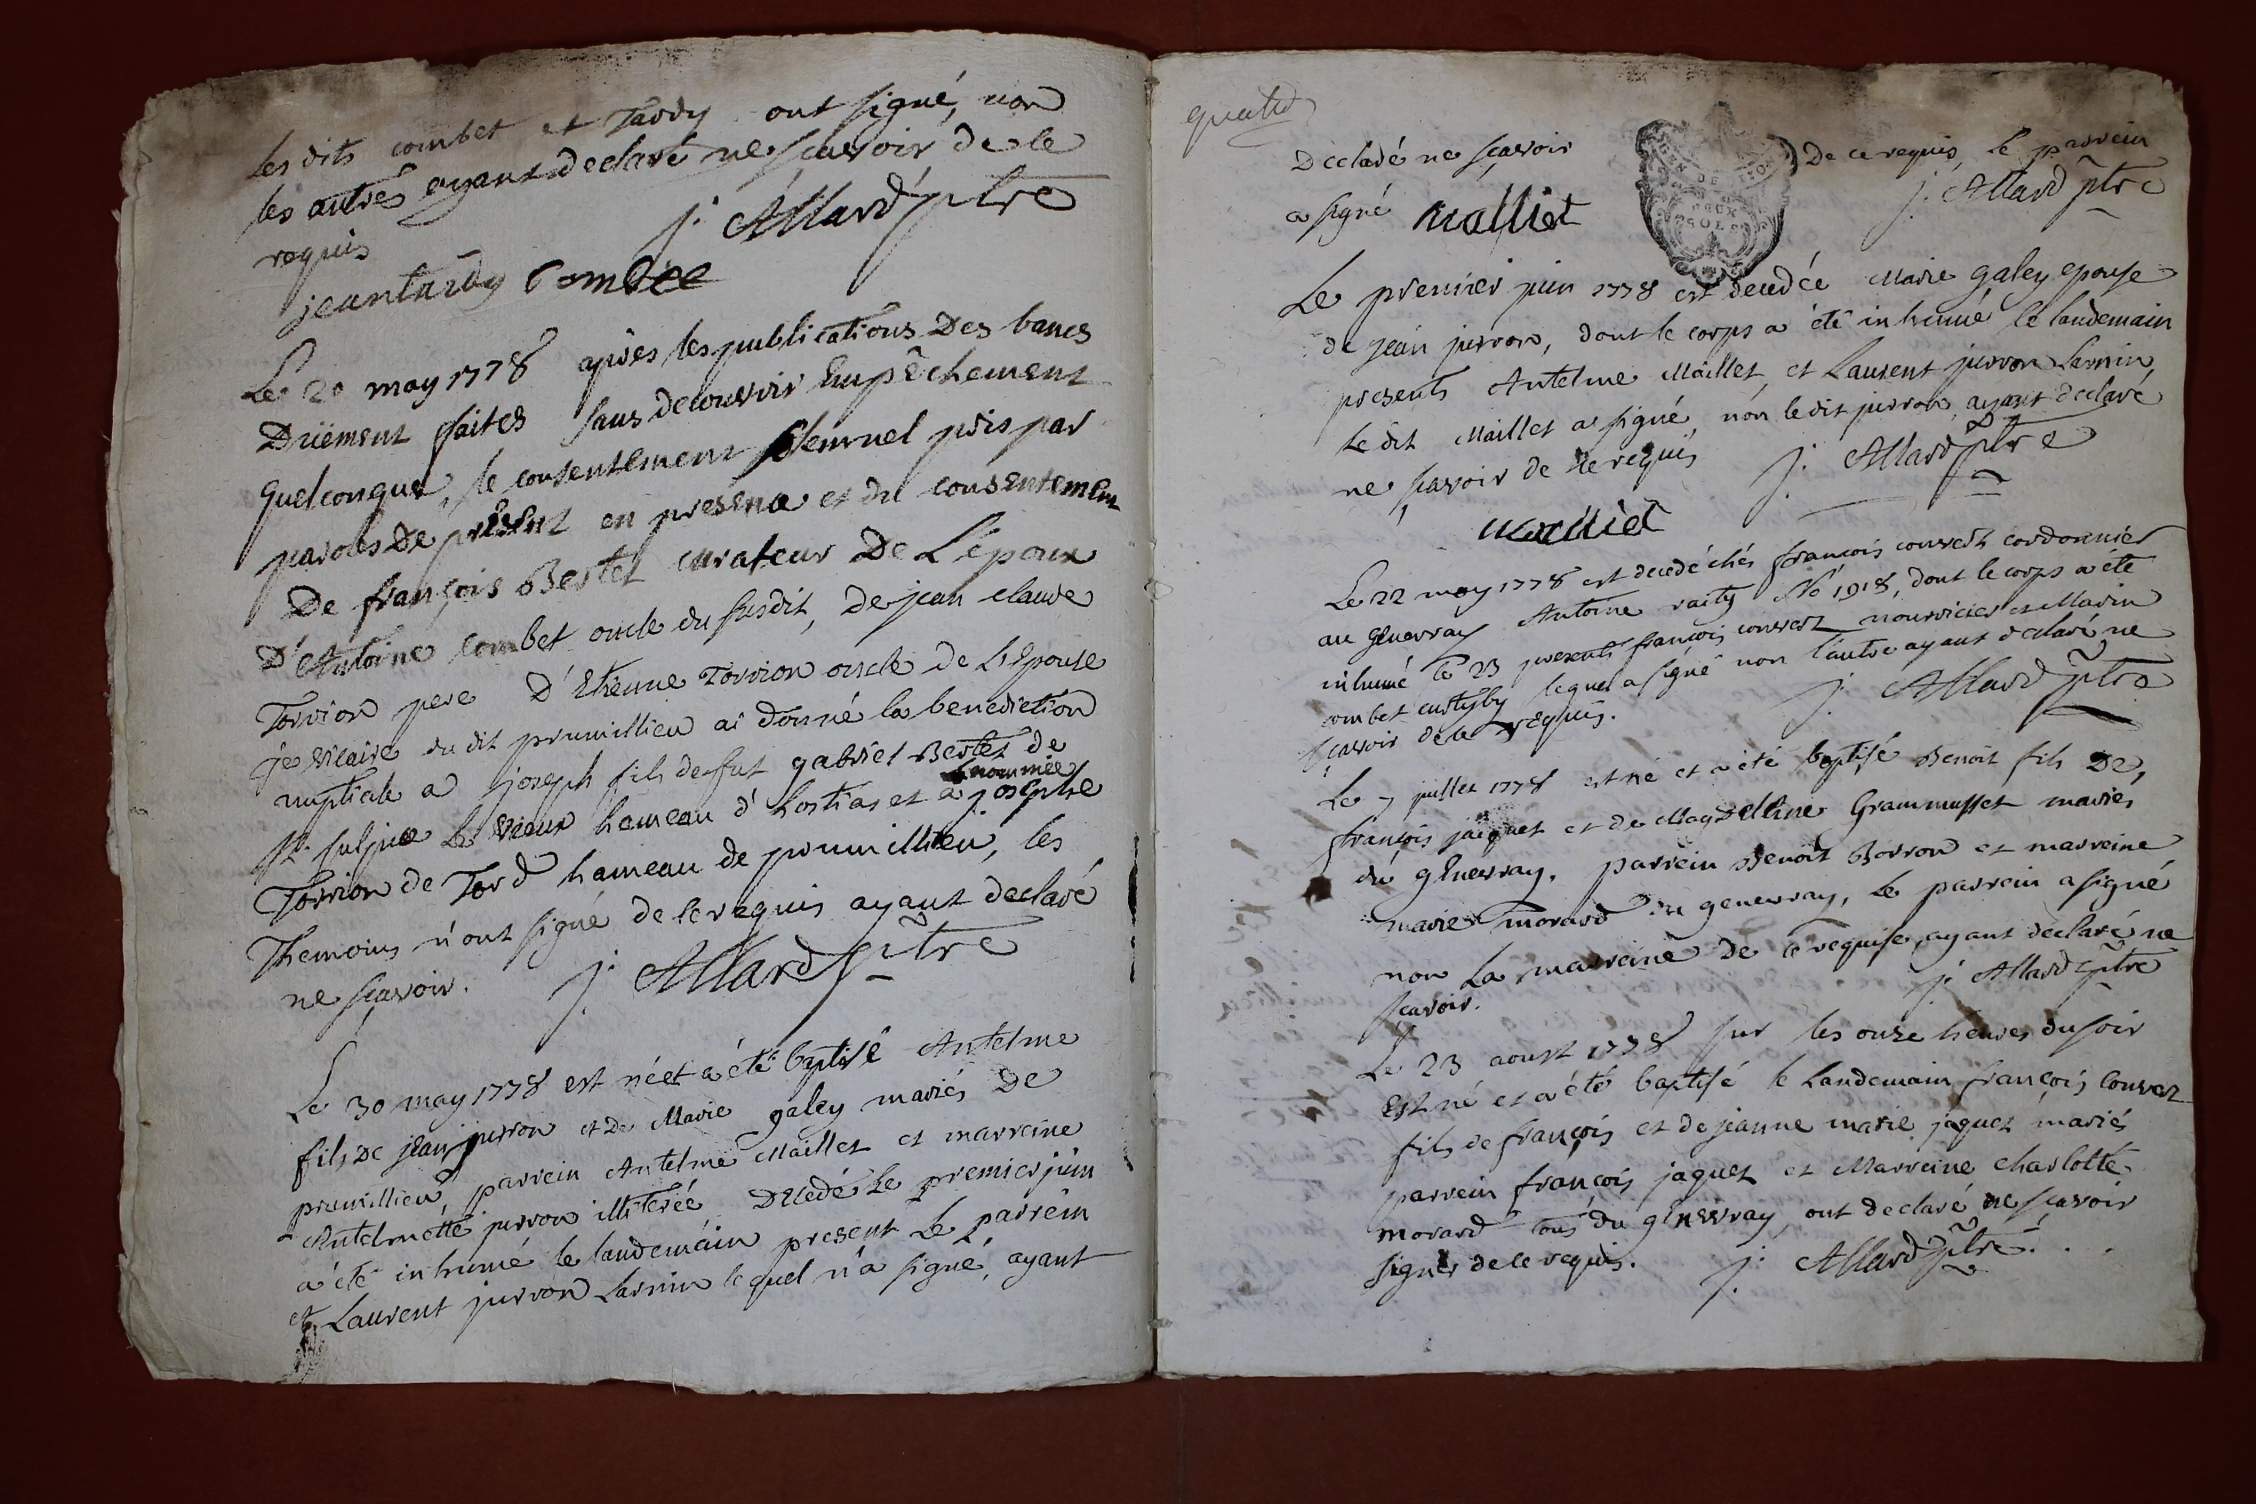 les dits combet et Tardy ont signé, non
les autres ayant declaré ne scavoir de ce
requis
j. Allard ptre
jean tardy Combet
Le 20 may 1778 après les publications Des bancs
Duëment faites sans decouvrir Empêchement
quelconque, le consentement solemnel pris par
paroles De présent en presence et du consentement
De françois Bertet curateur De L'époux
D'Antoine Combet oncle du susdit, De jean claude
Torrion pere D'Etienne Torrion oncle de L'Epouse
je vicaire du dit prumillieu ai donné la benediction
nuptiale a joseph fils de fut gabriel Bertet de
St. sulpice Le vieux hameau d'hostias et a josephte
nommée
Torrion de Tord hameau de prumillieu, les
Themoins n'ont signé de ce requis ayant declaré
ne scavoir. j. Allard ptre
Le 30 may 1778 est né et a été baptisé Antelme
fils De jean jurron et De Marie galey mariés De
prumillieu, parrein Antelme Maillet et marreine
Antelmette jurron illiterée Décédé Le premier juin
a été inhumé le landemain present Le parrein
et Laurent jurron Larnin lequel n'a signé, ayant
quatre
Declaré ne scavoir De ce requis, Le parrein
a signé malliet j. Allard ptre
GEN DE
DEUX
SOLS
Le premier juin 1778 est decedée Marie galey epouse
de jean jurron, dont le corps a été inhumé le landemain
presents Antelme Maillet, et Laurent jurron Larnin,
Le dit Maillet a signé, non le dit jurron, ayant declaré
ne scavoir de ce requis j. Allard ptre
malliet
Le 22 may 1778 est decedé chés françois convert cordonnier
au genevray Antoine raity No 1918, dont le corps a été
inhumé le 23 presents françois convert nourricier et Marin
combet custyby lequel a signé non l'autre ayant declaré ne
scavoir de ce requis. j. Allard ptre
Le 7 juillet 1778 est né et a été baptisé Benoit fils De,
françois jaquet et de Magdelline Grammusset mariés
du genevray. parrein Benoit Borron et marreine
marie morard du genevray, Le parrein a signé
non La marreine De ce requise, ayant declaré ne
scavoir. j. Allard ptre
Le 23 aoust 1778 sur les onze heures du soir
est né et a été baptisé le Landemain françois Convert
fils de françois et de jeanne marie jaquet mariés
parrein françois jaquet et Marreine Charlotte
morard tous du genevray, ont declaré ne scavoir
signer de ce requis. j. Allard ptre